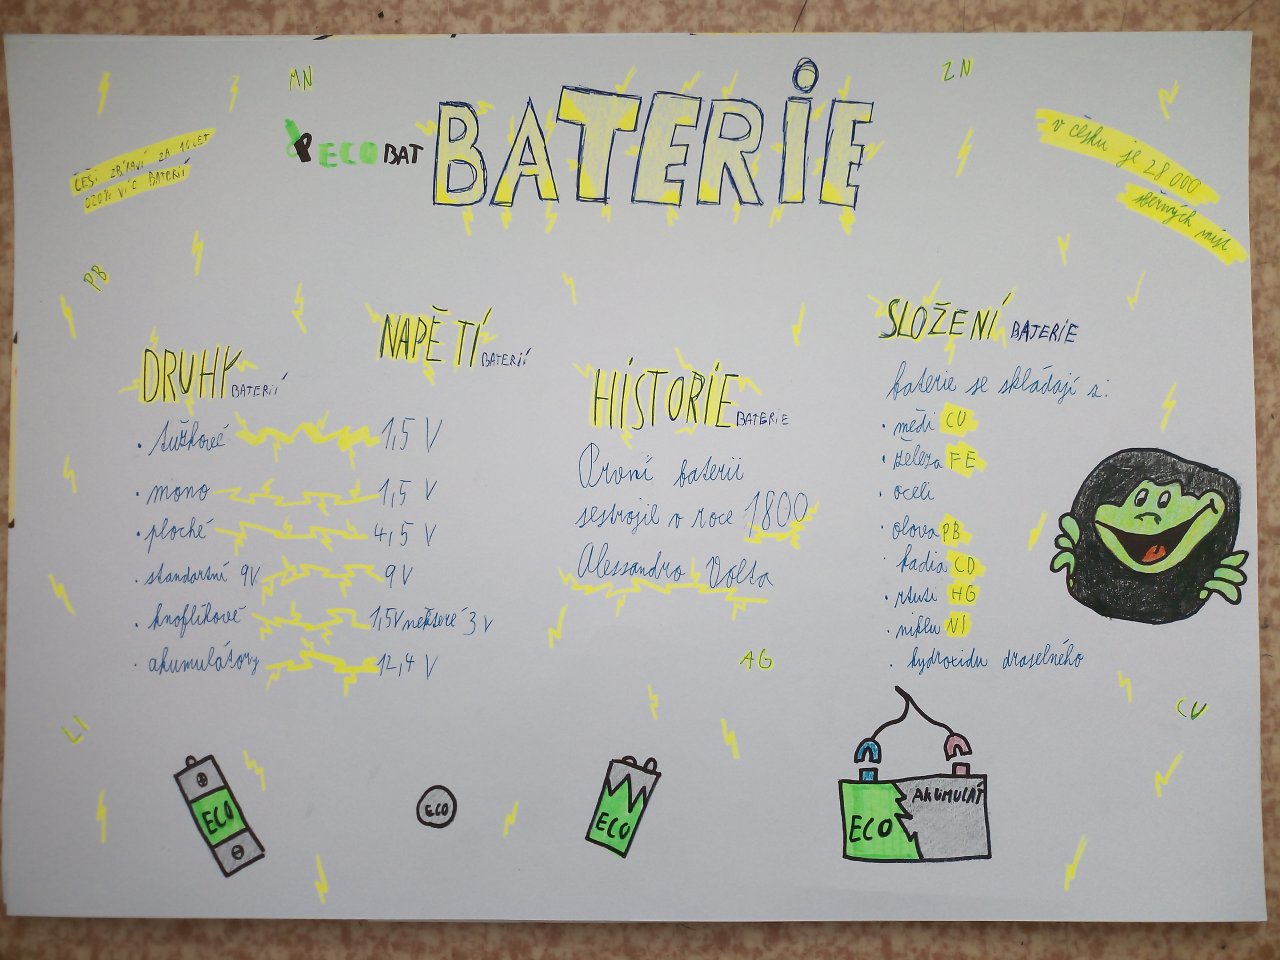 MN
ZN
BATERIE
ECOBAT
ČEŠI ZBÍRAVÍ ZA 16 LET
020% VÍC BATERIÍ
v česku je 28 000
sběrných míst
PB
DRUHY BATERIÍ
• tužkové
• mono
• ploché
• standartní 9V
• knoflíkové
• akumulátory
NAPĚTÍ BATERIÍ
1,5 V
1,5 V
4,5 V
9 V
1,5V některé 3 V
12,4 V
HISTORIE BATERIE
První baterii
sestrojil v roce 1800
Alessandro Volta
SLOŽENÍ BATERIE
baterie se skládají z:
• mědi CU
• železa FE
• oceli
• olova PB
• kadia CD
• rtuti HG
• niklu NI
• hydroxidu draselného
AG
LI
CU
ECO
ECO
ECO
ECO
AKUMULÁT